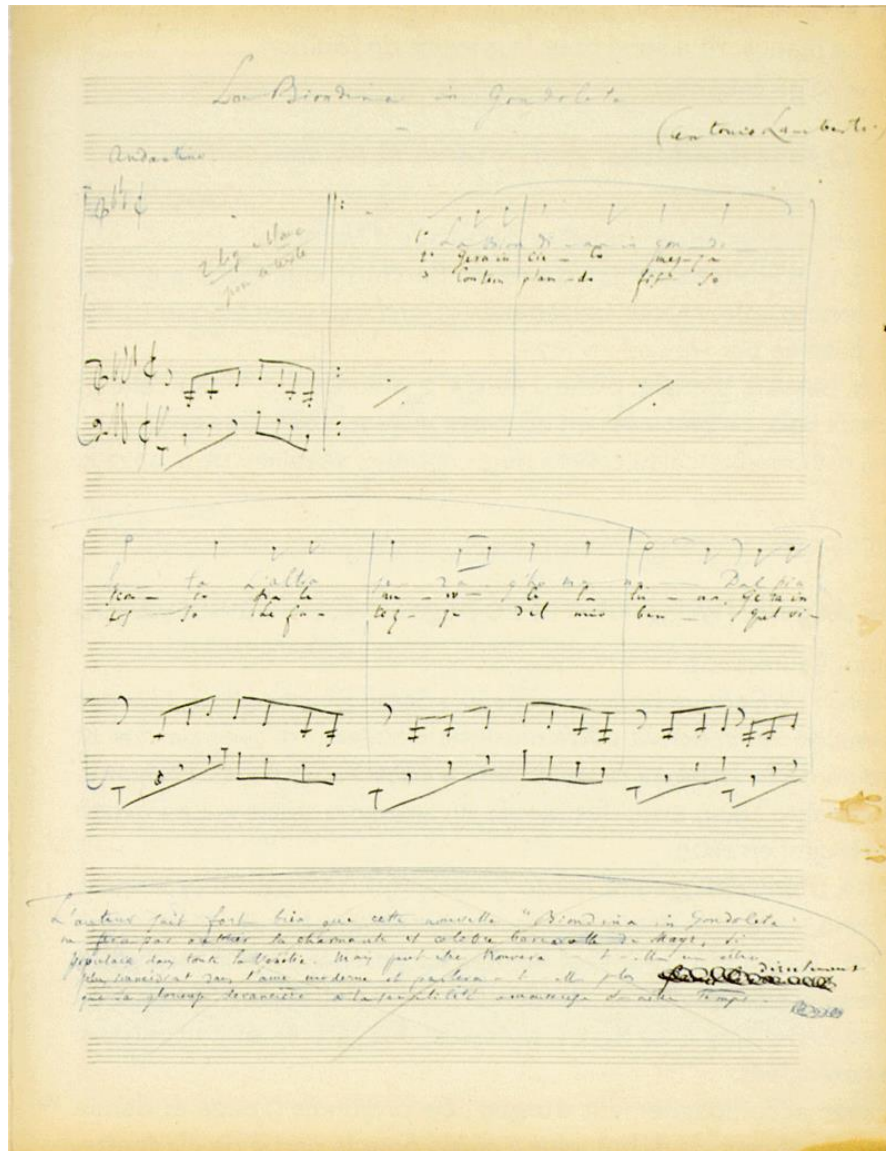 La Biondina in Gondoleta
(Antonio Lamberti)
Andantino.
1º La Bion di - na in gon - do
2º Gera in cie - lo mez - za
3 Contem plan - do fis - so
le - ta l'altra se - ra gho me na - Dal pia
scon - ta fra le nu - vo - le la lu - na, Gera in
fis - so le fa - tez - ze del mio ben - quel vi -
L'auteur sait fort bien que cette nouvelle "Biondina in Gondoleta
ne fera pas oublier la charmante et célèbre barcarolle de Mayr, si
populaire dans toute la Vénétie. Mais peut être trouvera - t - elle un
dans l'âme moderne et parlera - t - elle plus directement
que sa glorieuse devancière à la de notre temps.